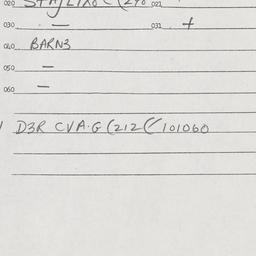 020 021
030 — 031 +
040 BARN3
050 —
060 —
D3R CVA·G (212 (101060